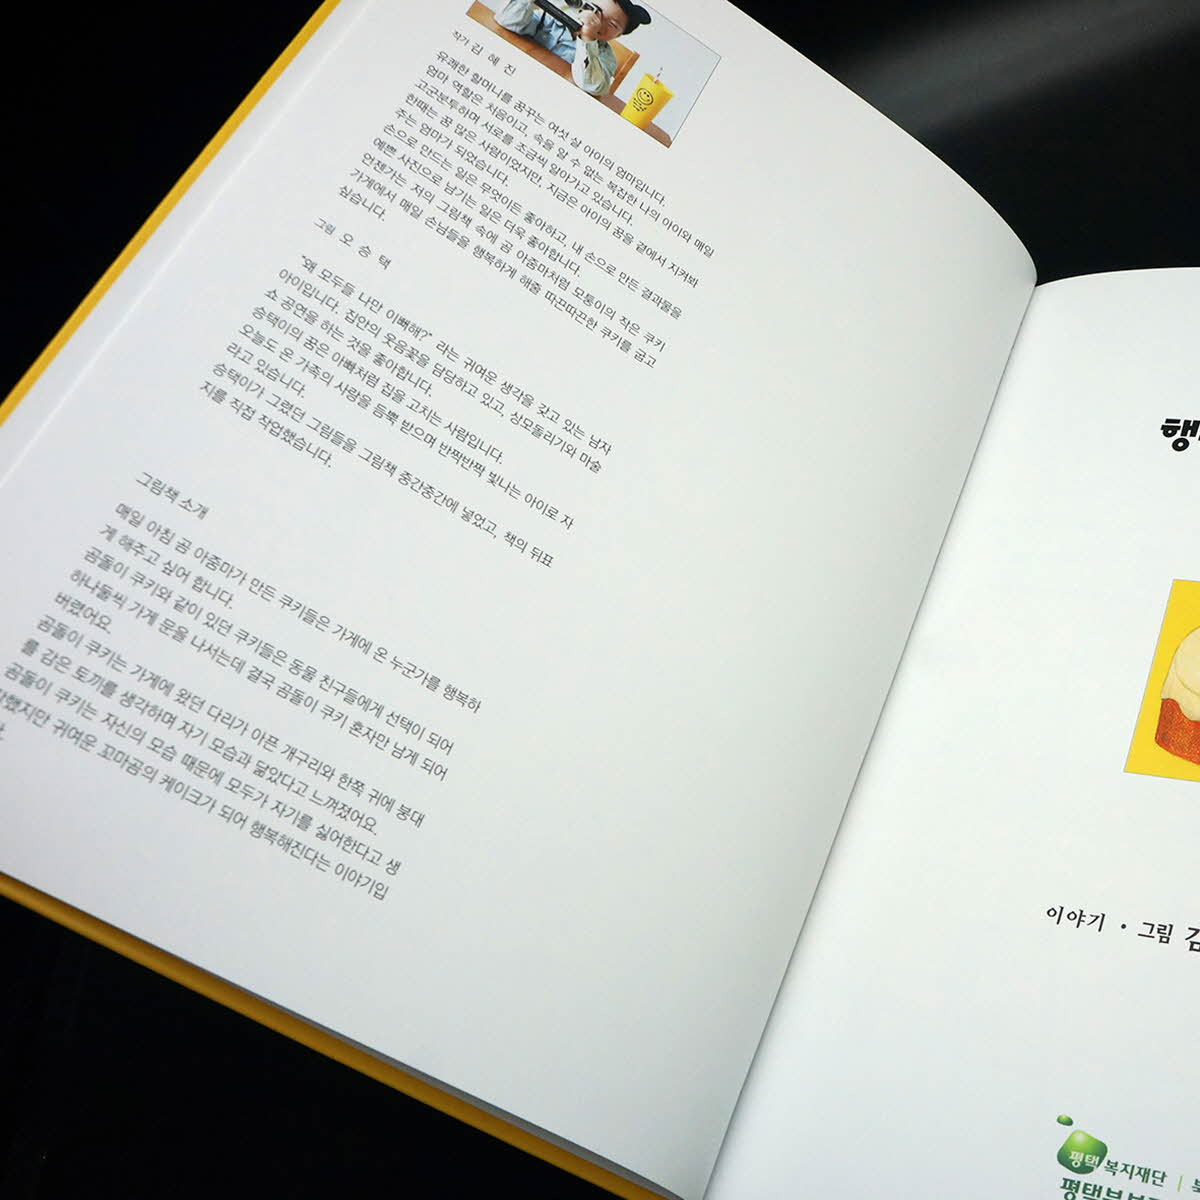 작가 김 혜 진
유쾌한 할머니를 꿈꾸는 여섯 살 아이의 엄마입니다.
엄마 역할은 처음이고, 속을 알 수 없는 복잡한 나의 아이와 매일
고군분투하며 서로를 조금씩 알아가고 있습니다.
한때는 꿈 많은 사람이었지만, 지금은 아이의 꿈을 곁에서 지켜봐
주는 엄마가 되었습니다.
손으로 만드는 일은 무엇이든 좋아하고, 내 손으로 만든 결과물을
예쁜 사진으로 남기는 일은 더욱 좋아합니다.
언젠가는 저의 그림책 속에 곰 아줌마처럼 모퉁이의 작은 쿠키
가게에서 매일 손님들을 행복하게 해줄 따끈따끈한 쿠키를 굽고
싶습니다.
그림 오 승 택
"왜 모두들 나만 이뻐해?" 라는 귀여운 생각을 갖고 있는 남자
아이입니다. 집안의 웃음꽃을 담당하고 있고, 상모돌리기와 마술
쇼 공연을 하는 것을 좋아합니다.
승택이의 꿈은 아빠처럼 집을 고치는 사람입니다.
오늘도 온 가족의 사랑을 듬뿍 받으며 반짝반짝 빛나는 아이로 자
라고 있습니다.
승택이가 그렸던 그림들을 그림책 중간중간에 넣었고, 책의 뒤표
지를 직접 작업했습니다.
그림책 소개
매일 아침 곰 아줌마가 만든 쿠키들은 가게에 온 누군가를 행복하
게 해주고 싶어 합니다.
곰돌이 쿠키와 같이 있던 쿠키들은 동물 친구들에게 선택이 되어
하나둘씩 가게 문을 나서는데 결국 곰돌이 쿠키 혼자만 남게 되어
버렸어요.
곰돌이 쿠키는 가게에 왔던 다리가 아픈 개구리와 한쪽 귀에 붕대
를 감은 토끼를 생각하며 자기 모습과 닮았다고 느껴졌어요.
곰돌이 쿠키는 자신의 모습 때문에 모두가 자기를 싫어한다고 생
각했지만 귀여운 꼬마곰의 케이크가 되어 행복해진다는 이야기입
행
이야기 · 그림 김
평택 복지재단 |